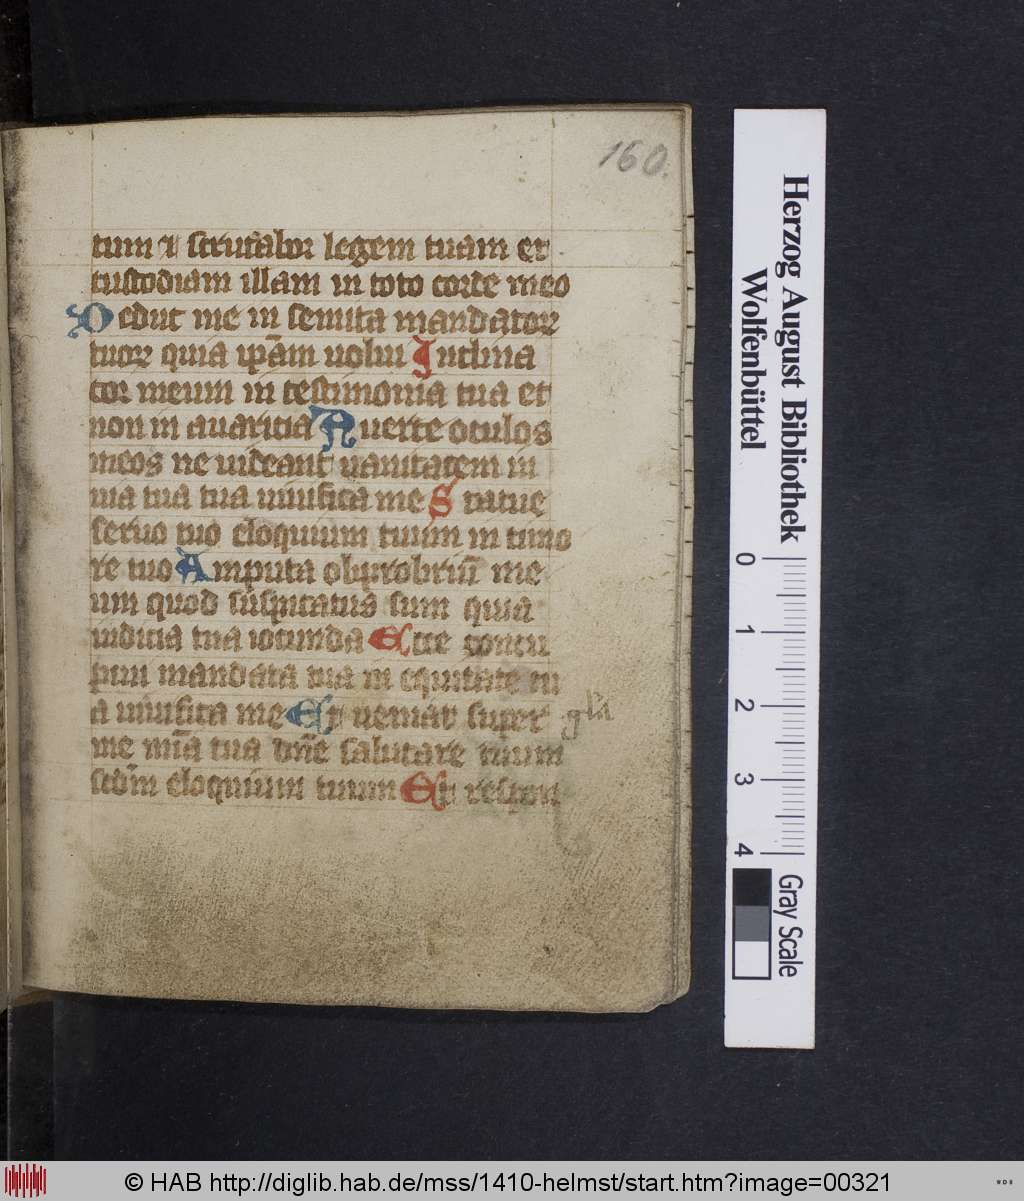 160.
tum ⁊ scrutabor legem tuam et
custodiam illam in toto corde meo
Deduc me in semita mandator
tuor quia ip̄am uolui Inclina
cor meum in testimonia tua et
non in auaritia Auerte oculos
meos ne uideant uanitatem in
uia tua tua uiuifica me Statue
seruo tuo eloquium tuum in timo
re tuo Amputa obprobriū me
um quod suspicatus sum quia
iudicia tua iocunda Ecce concu
piui mandata tua in equitate tu
a uiuifica me Et ueniat super
me mīa tua dn̄e salutare tuum
scdm̄ eloquium tuum Et respon
gla
Herzog August Bibliothek
Wolfenbüttel
0 1 2 3 4
Gray Scale
© HAB http://diglib.hab.de/mss/1410-helmst/start.htm?image=00321